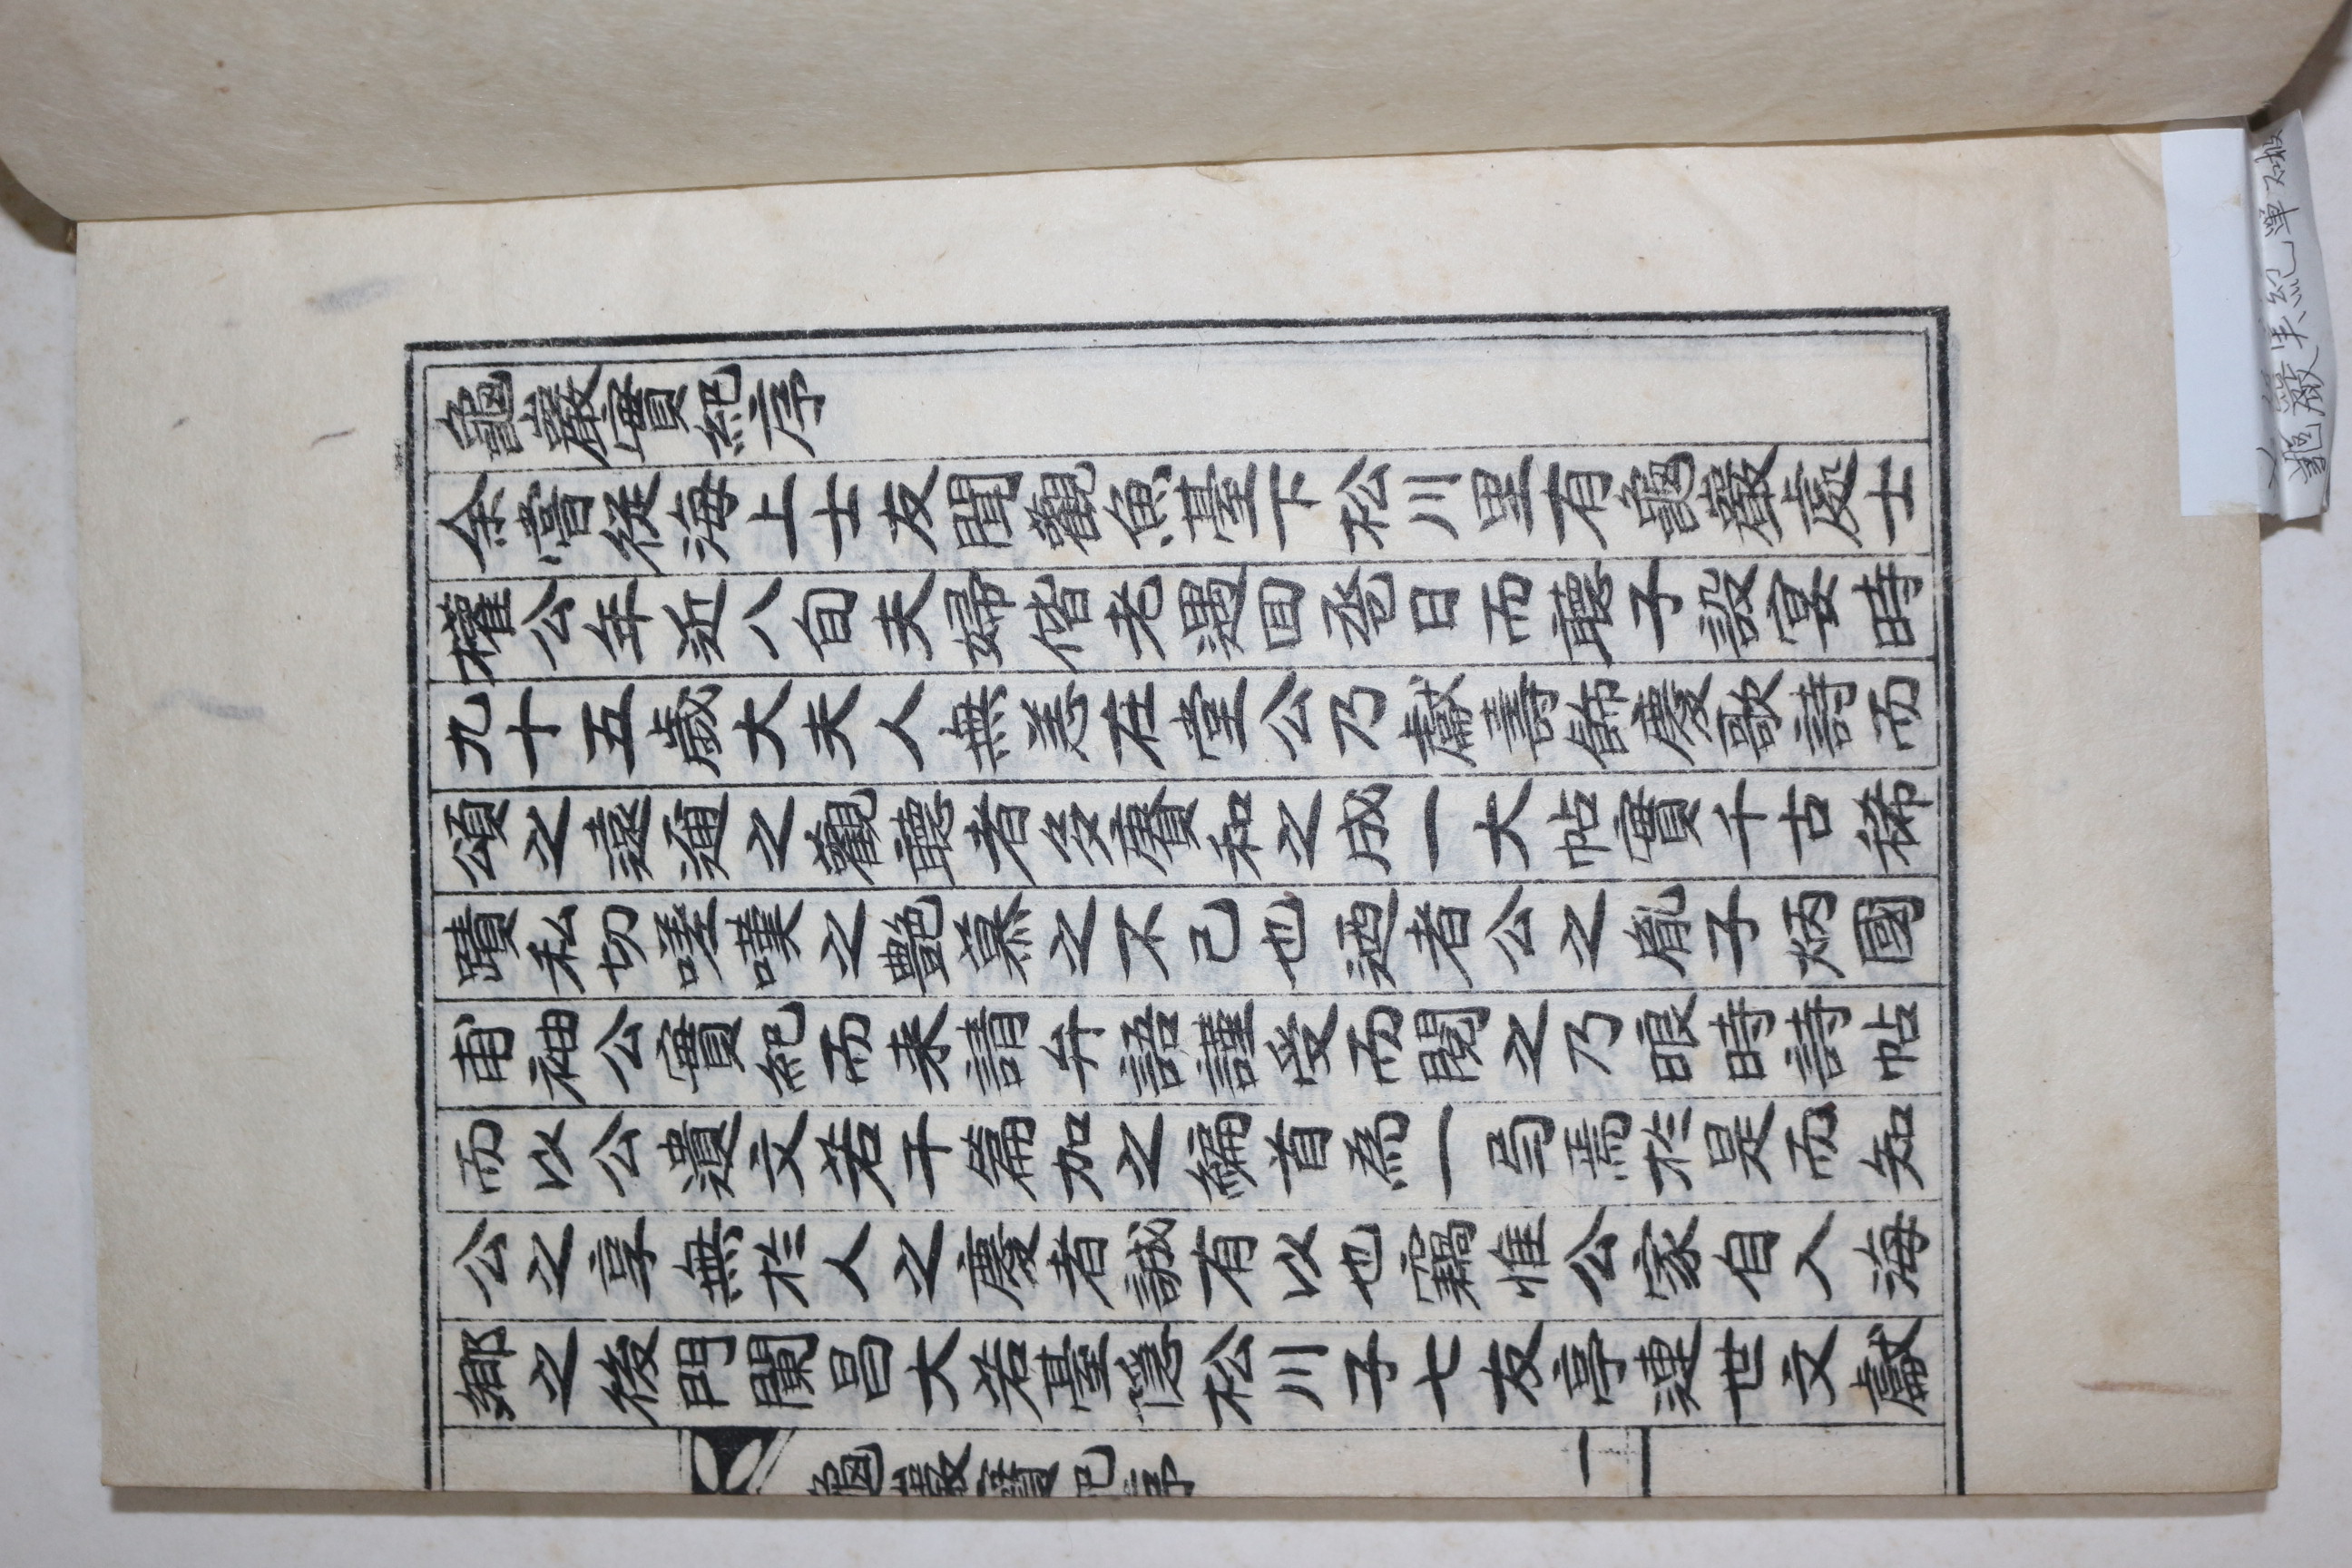 龜巖實紀序
余嘗從海上士友聞觀魚臺下松川里有龜巖處士
權公年近八旬夫婦偕老還回巹日而聽子設宴時
九十五歲大夫人無恙在堂公乃獻壽飾慶歌詩而
頌之遠邇之觀聽者多賡和之成一大帖實千古稀
蹟私切嗟嘆之艶慕之不已也迺者公之胤子炳國
甫袖公實紀而来請弁語謹受而閱之乃曩時詩帖
而以公遺文若干篇加之編首爲一弓焉於是而知
公之享無於人之慶者誠有以也竊惟公家自入海
鄉之後門闌昌大若臺隱松川子七友亭連世文獻
龜巖實紀序
一
龜巖実紀單